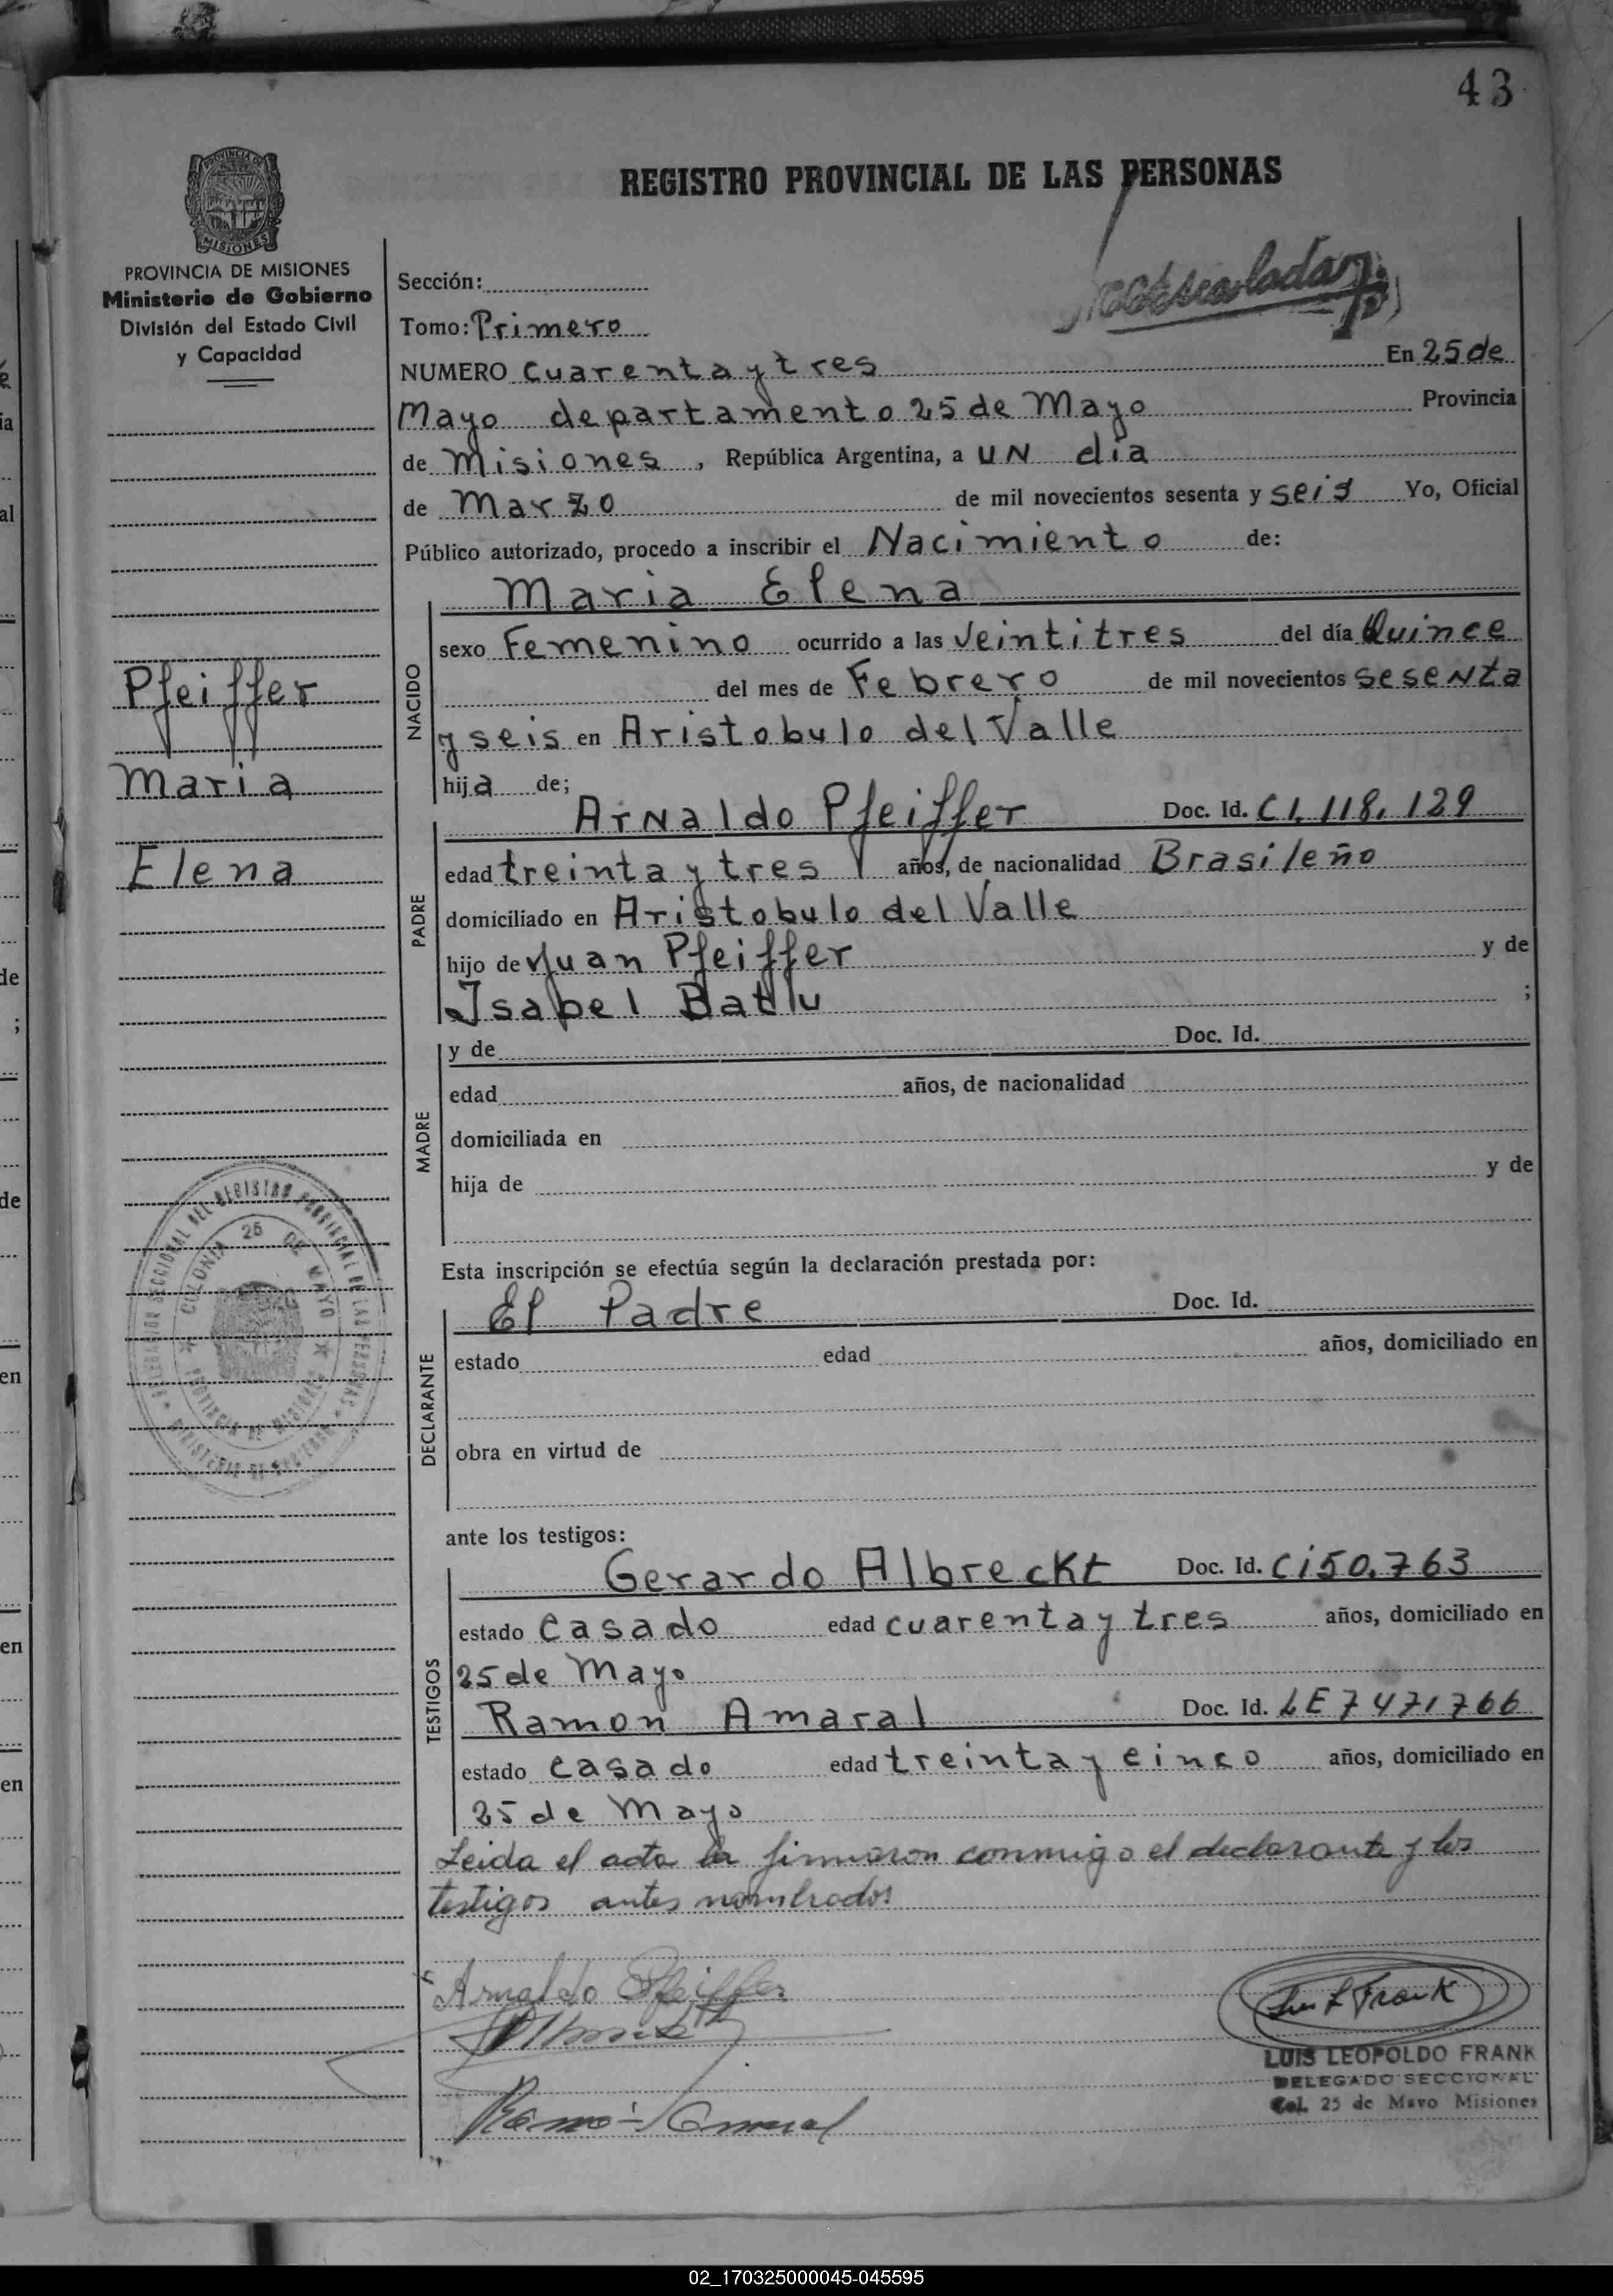 43
REGISTRO PROVINCIAL DE LAS PERSONAS
PROVINCIA DE
MISIONES
PROVINCIA DE MISIONES
Ministerio de Gobierno
División del Estado Civil
y Capacidad
Sección:
Tomo: Primero
NUMERO Cuarenta y tres En 25 de
Mayo departamento 25 de Mayo Provincia
de Misiones, República Argentina, a UN día
de Marzo de mil novecientos sesenta y seis Yo, Oficial
Público autorizado, procedo a inscribir el Nacimiento de:
Maria Elena
NACIDO
sexo Femenino ocurrido a las Veintitres del día Quince
del mes de Febrero de mil novecientos sesenta
y seis en Aristobulo del Valle
hija de;
Pfeiffer
Maria
Elena
PADRE
Arnaldo Pfeiffer Doc. Id. C.I. 118.129
edad treinta y tres años, de nacionalidad Brasileño
domiciliado en Aristobulo del Valle
hijo de Juan Pfeiffer y de
Isabel Batlu ;
MADRE
y de Doc. Id.
edad años, de nacionalidad
domiciliada en
hija de y de
Esta inscripción se efectúa según la declaración prestada por:
DECLARANTE
El Padre Doc. Id.
estado edad años, domiciliado en
obra en virtud de
DELEGACION SECCIONAL DEL REGISTRO PROVINCIAL DE LAS PERSONAS
COLONIA 25 DE MAYO
PROVINCIA DE MISIONES
MINISTERIO DE GOBIERNO
ante los testigos:
TESTIGOS
Gerardo Albreckt Doc. Id. Ci 50.763
estado Casado edad cuarenta y tres años, domiciliado en
25 de Mayo
Ramon Amaral Doc. Id. LE 7471766
estado Casado edad treinta y cinco años, domiciliado en
25 de Mayo
Leida el acta la firmaron conmigo el declarante y los
testigos antes nombrados
Arnaldo Pfeiffer
Luis L Frank
LUIS LEOPOLDO FRANK
DELEGADO SECCIONAL
Col. 25 de Mayo Misiones
Ramón Amaral
02_170325000045-045595